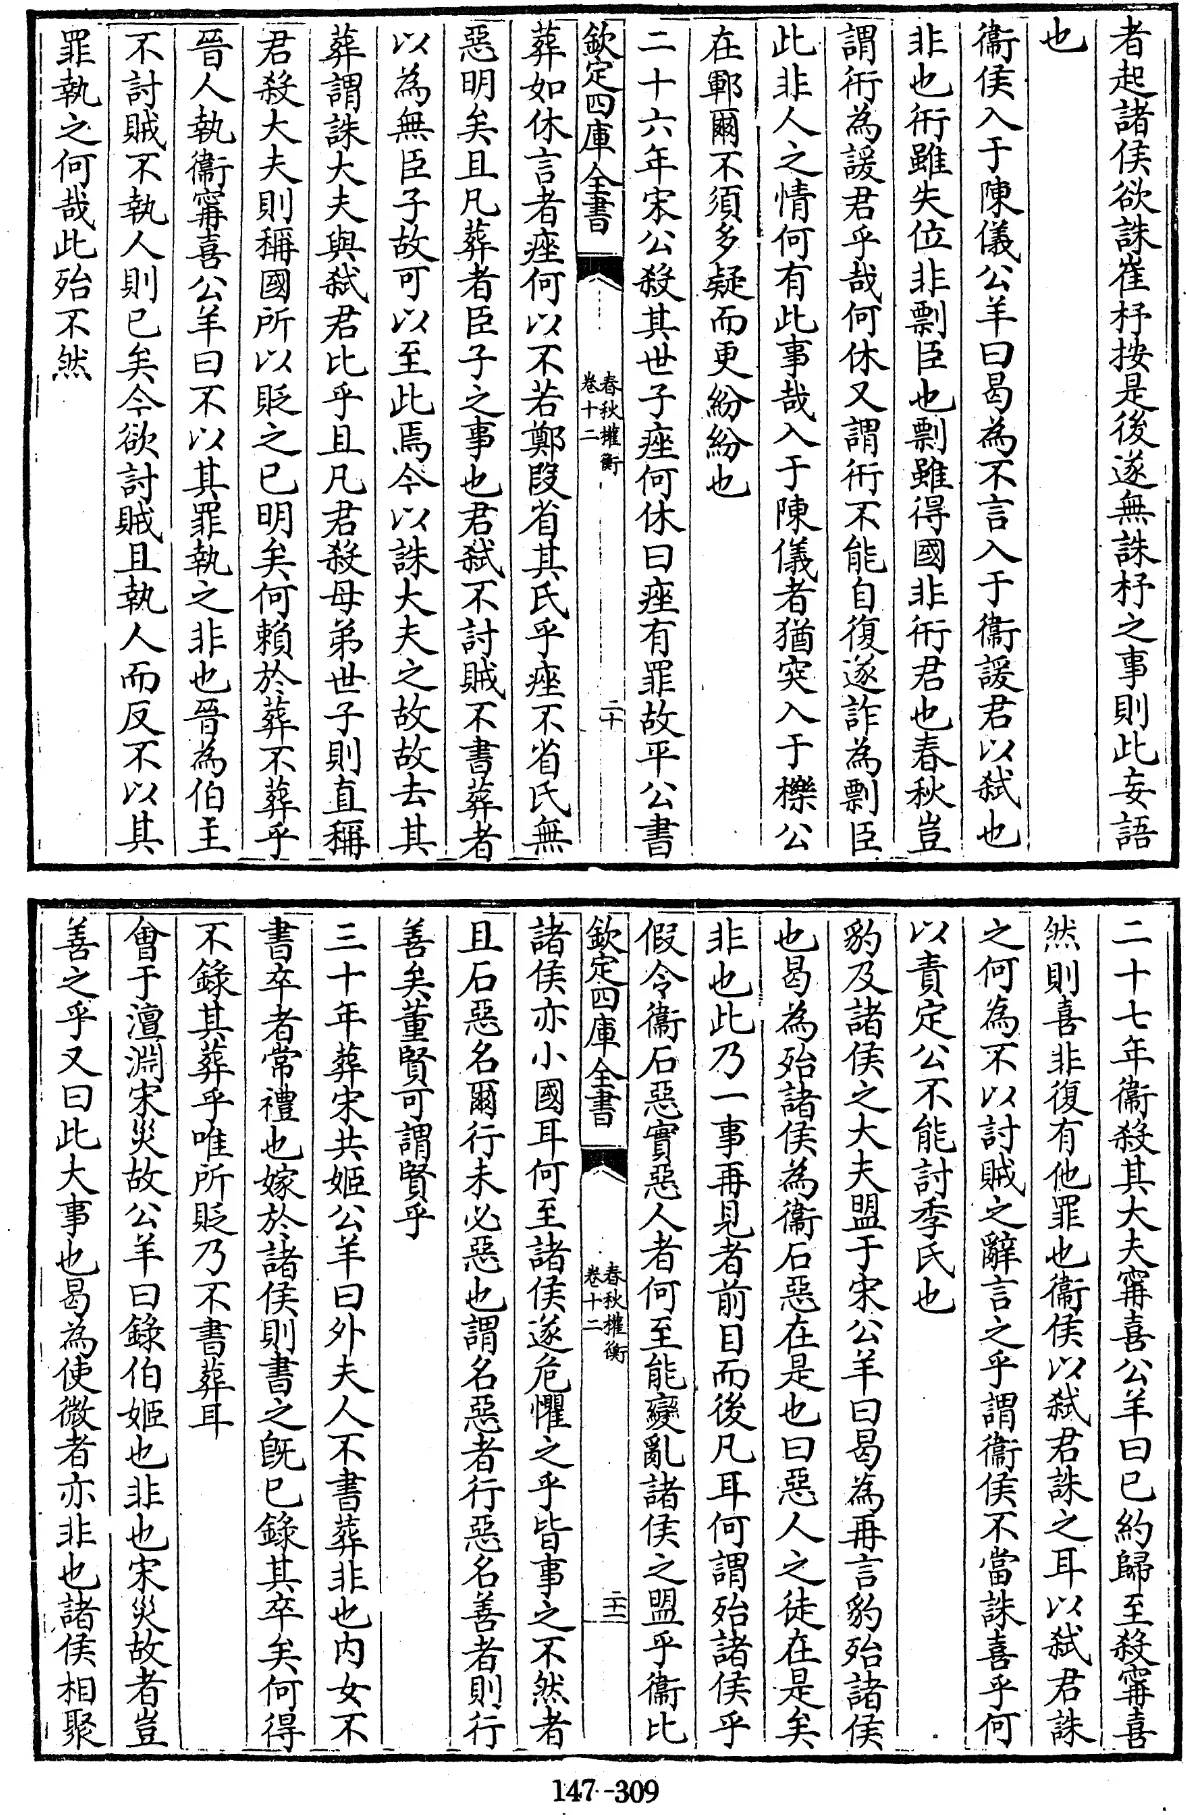 者起諸侯欲誅崔杼按是後遂無誅杼之事則此妄語
也
衞侯入于陳儀公羊曰曷為不言入于衞諼君以弑也
非也衎雖失位非剽臣也剽雖得國非衎君也春秋豈
謂衎為諼君乎哉何休又謂衎不能自復遂詐為剽臣
此非人之情何有此事哉入于陳儀者猶突入于櫟公
在鄆爾不須多疑而更紛紛也
二十六年宋公殺其世子痤何休曰痤有罪故平公書
欽定四庫全書
春秋權衡
卷十二
二十
葬如休言者痤何以不若鄭段省其氏乎痤不省氏無
惡明矣且凡葬者臣子之事也君弑不討賊不書葬者
以為無臣子故可以至此焉今以誅大夫之故故去其
葬謂誅大夫與弑君比乎且凡君殺母弟世子則直稱
君殺大夫則稱國所以貶之已明矣何賴於葬不葬乎
晉人執衞甯喜公羊曰不以其罪執之非也晉為伯主
不討賊不執人則已矣今欲討賊且執人而反不以其
罪執之何哉此殆不然
二十七年衞殺其大夫甯喜公羊曰已約歸至殺甯喜
然則喜非復有他罪也衞侯以弑君誅之耳以弑君誅
之何為不以討賊之辭言之乎謂衞侯不當誅喜乎何
以責定公不能討季氏也
豹及諸侯之大夫盟于宋公羊曰曷為再言豹殆諸侯
也曷為殆諸侯為衞石惡在是也曰惡人之徒在是矣
非也此乃一事再見者前目而後凡耳何謂殆諸侯乎
假令衞石惡實惡人者何至能變亂諸侯之盟乎衞比
欽定四庫全書
春秋權衡
卷十二
二十一
諸侯亦小國耳何至諸侯遂危懼之乎皆事之不然者
且石惡名爾行未必惡也謂名惡者行惡名善者則行
善矣董賢可謂賢乎
三十年葬宋共姬公羊曰外夫人不書葬非也内女不
書卒者常禮也嫁於諸侯則書之既已錄其卒矣何得
不錄其葬乎唯所貶乃不書葬耳
會于澶淵宋災故公羊曰錄伯姬也非也宋災故者豈
善之乎又曰此大事也曷為使微者亦非也諸侯相聚
147-309